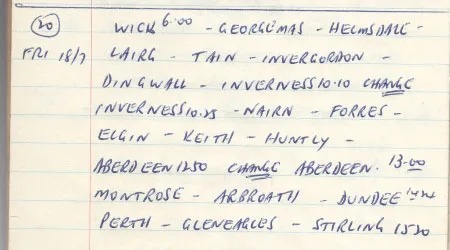 20 WICK 6.00 - GEORGEMAS - HELMSDALE -
FRI 18/7 LAIRG - TAIN - INVERGORDON -
DINGWALL - INVERNESS 10.10 CHANGE
INVERNESS 10.25 - NAIRN - FORRES -
ELGIN - KEITH - HUNTLY -
ABERDEEN 1250 CHANGE ABERDEEN. 13.00
MONTROSE - ARBROATH - DUNDEE
PERTH - GLENEAGLES - STIRLING 1520